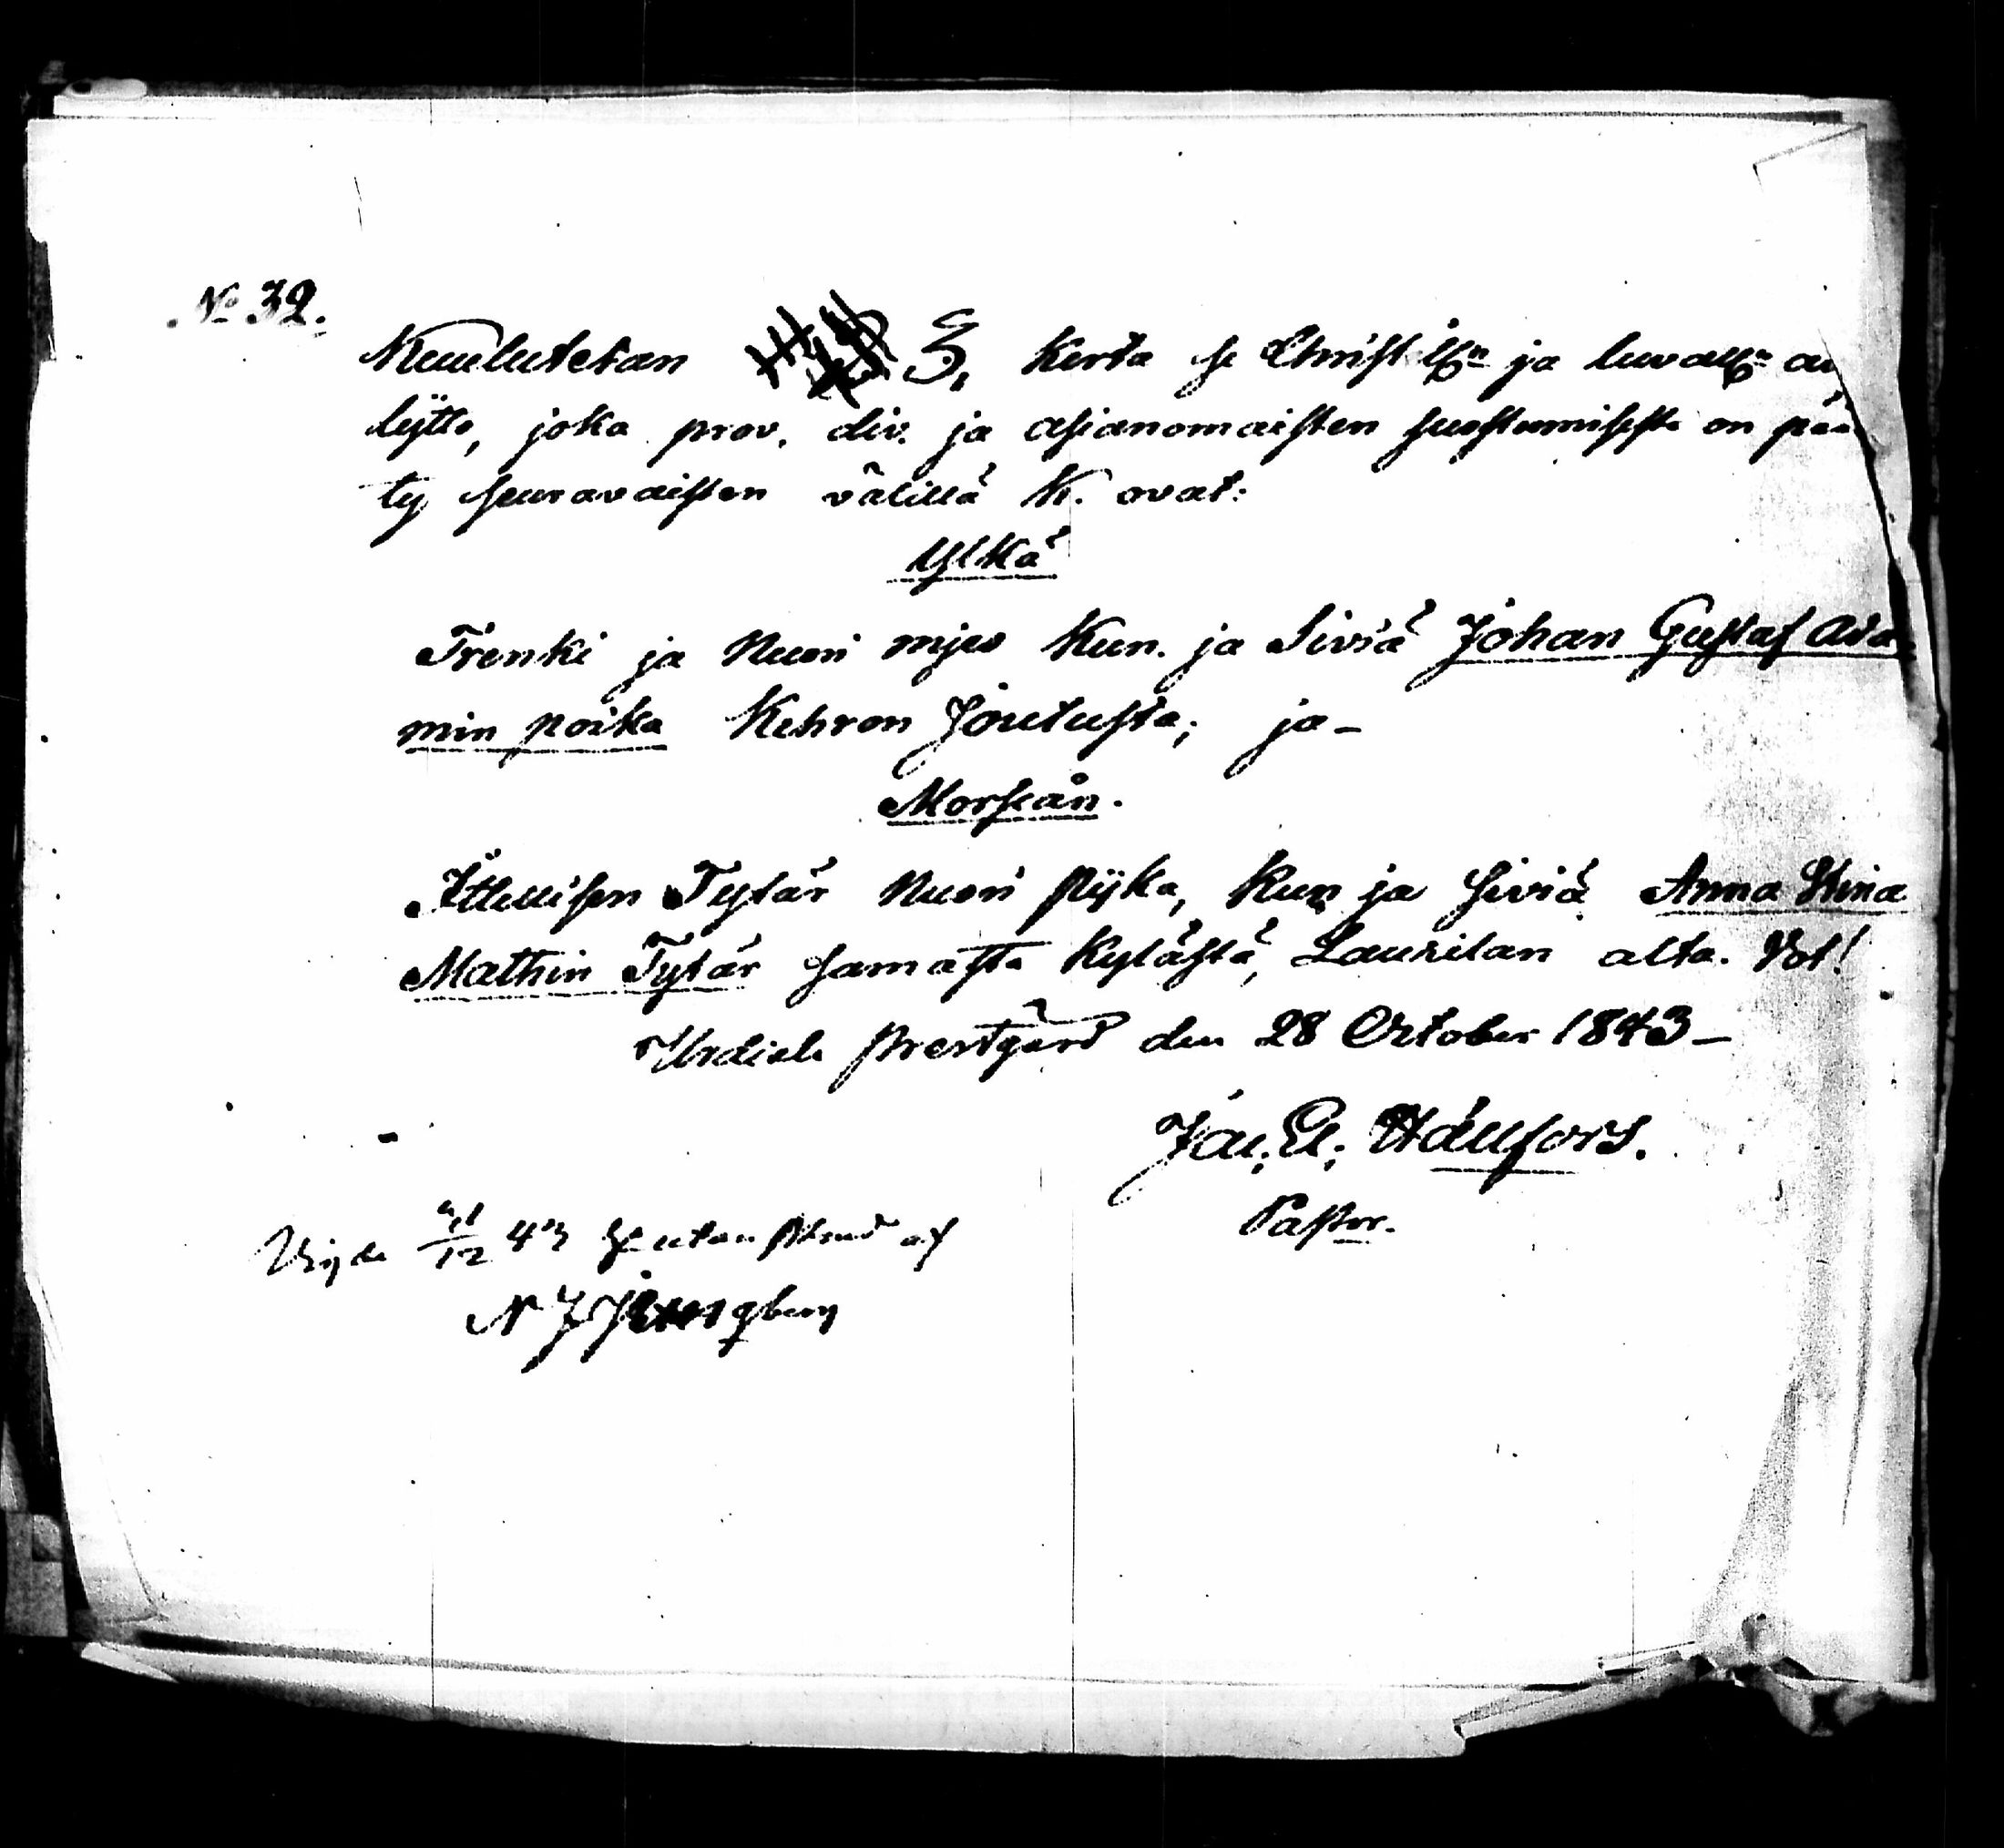 No 32.
Kuulutetan 3. Kerta se Christilln ja luvalln av
lijtto, joka prov. div. ja asianomaisten suostumisesta on pää
ty seuravaisten välillä K. ovat:
Ylkä
Trenki ja Nuori mjes Kun. ja Siviä Johan Gustaf Ada
min poika Kehron Joutusta; ja -
Morsiän.
Itellisen Tytär Nuori pijka, Kun ja siviä Anna Stina
Mathin Tytär samasta Kylästä, Laurilan alta. Vot!
Urdiala Prestgård den 28 October 1843 -
Jac. El. Hällfors.
Pastor.
Vigde 12 43 utan af
N J gberg